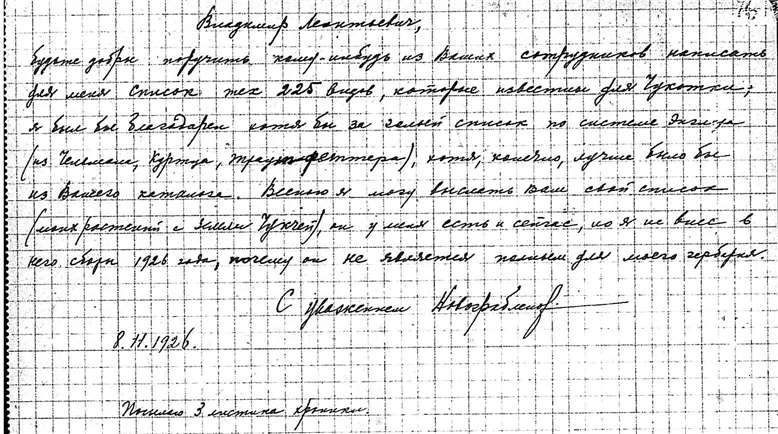 Владимир Леонтьевич,
будьте добры поручить кому-нибудь из Ваших сотрудников написать
для меня список тех 225 видов, которые известны для Чукотки;
я был бы благодарен хотя бы за голый список по системе Энглера
(из Чельмана, Куртца, Траутфеттера), хотя, конечно, лучше было бы
из Вашего каталога. Весною я могу выслать вам свой список
(моих растений с Земли Чукчей), он у меня есть и сейчас, но я не внес в
него сборы 1926 года, почему он не является полным для моего гербария.
С уважением Новограбленов
8.II.1926.
Посылаю 3 листика хроники.